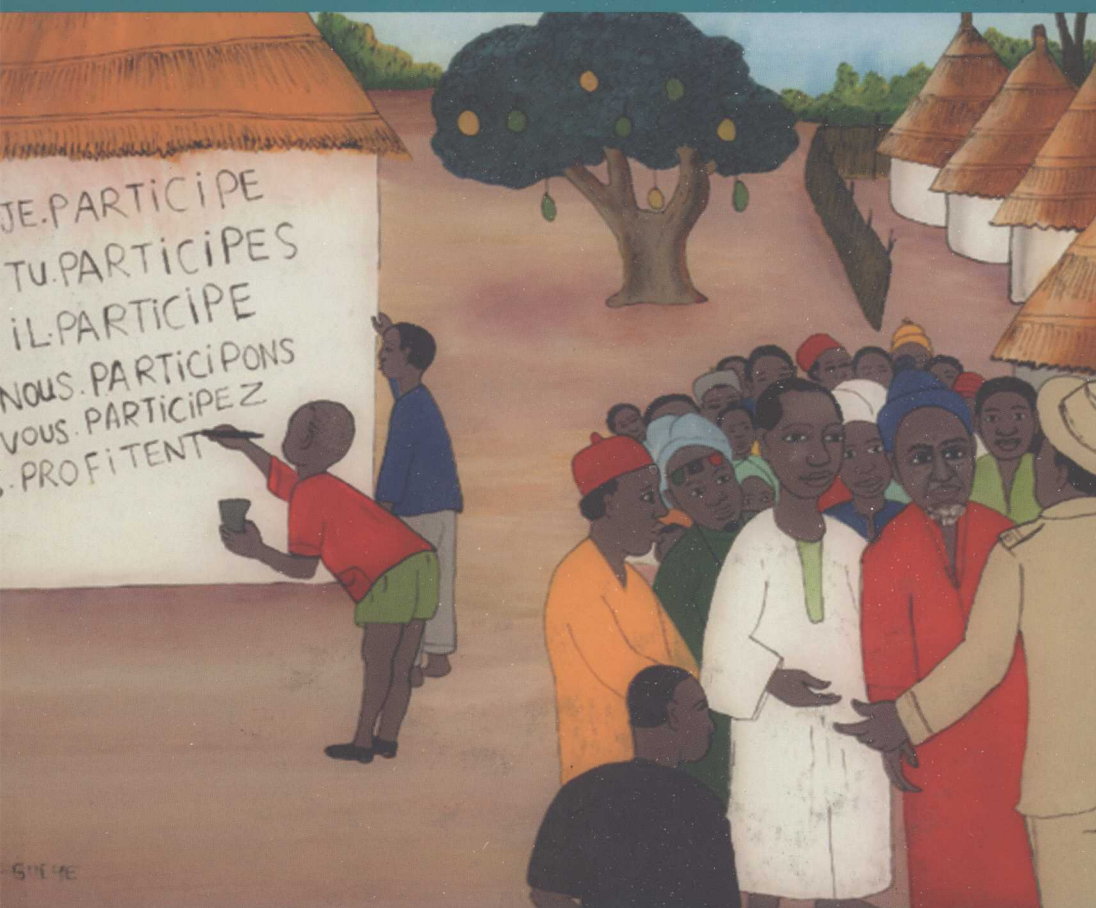 JE.PARTICIPE
TU.PARTICIPES
IL.PARTICIPE
NOUS.PARTICIPONS
VOUS.PARTICIPEZ
.PROFITENT
GUEYE